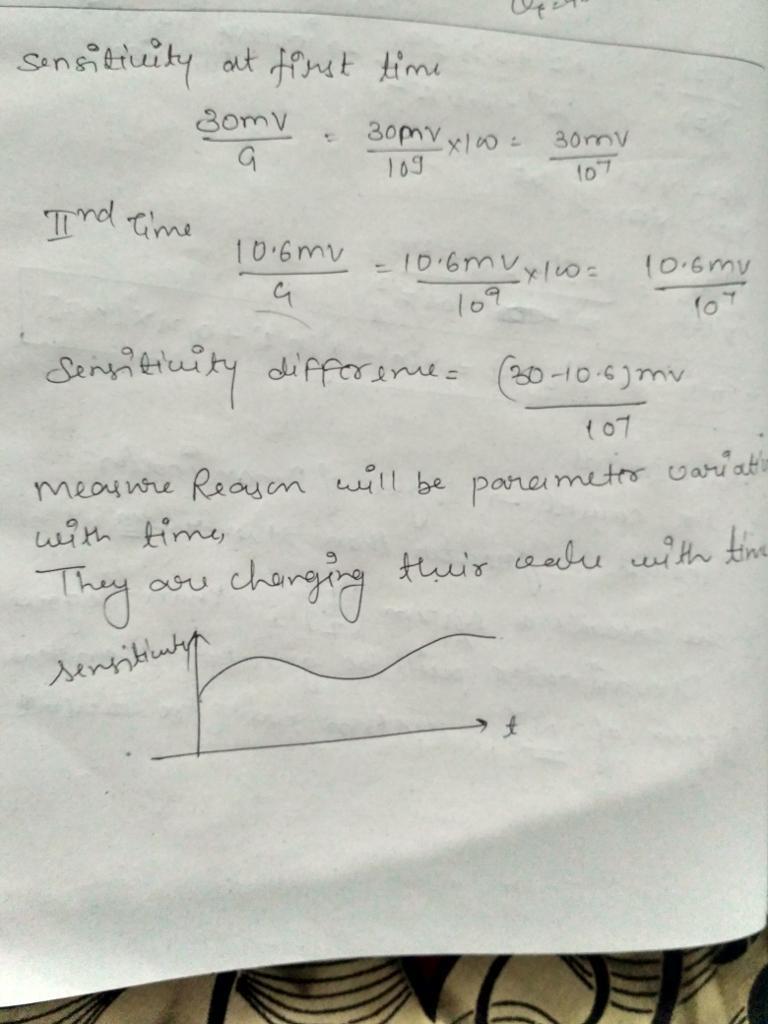 Sensitivity at first time
30mv/G = 30mv/10^9 x100 = 30mv/10^7
IInd time
10.6mv/G = 10.6mv/10^9 x100 = 10.6mv/10^7
Sensitivity difference = (30-10.6)mv/10^7
measure Reason will be parameter variati
with time,
They are changing their value with tim
sensitivity
t